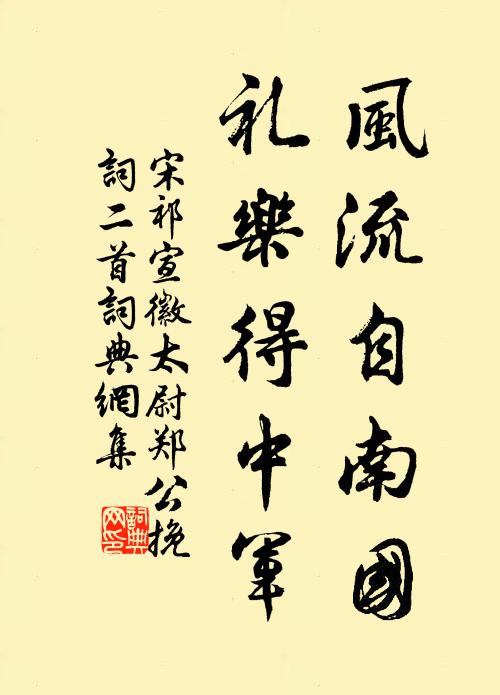 風流自南國
礼樂得中軍
宋祁宣徽太尉郑公挽
詞二首詞典網集
詞典
网印